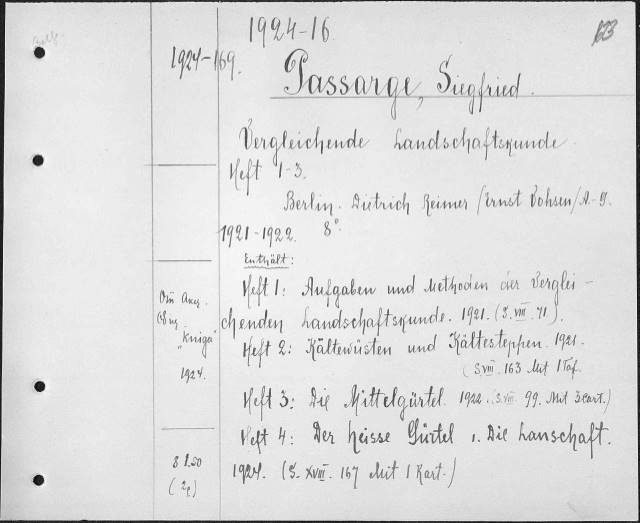 1924-16
1924-169.
Passarge, Siegfried.
Vergleichende Landschaftskunde.
Heft 1-3.
Berlin. Dietrich Reimer /Ernst Vohsen/ A.-G.
1921-1922. 8°.
Enthält:
Heft 1: Aufgaben und Methoden der Verglei-
chenden Landschaftskunde. 1921. (S. VIII. 71).
Heft 2: Kältewüsten und Kältesteppen. 1921.
(S. VIII. 163 Mit 1 Taf.
Heft 3: Die Mittelgürtel. 1922. (S. VIII. 99. Mit 3 Cart.)
Heft 4: Der heisse Gürtel. 1. Die Lanschaft.
1924. (S. XVIII. 167 Mit 1 Kart.)
"Kniga"
1924.
8 1.50